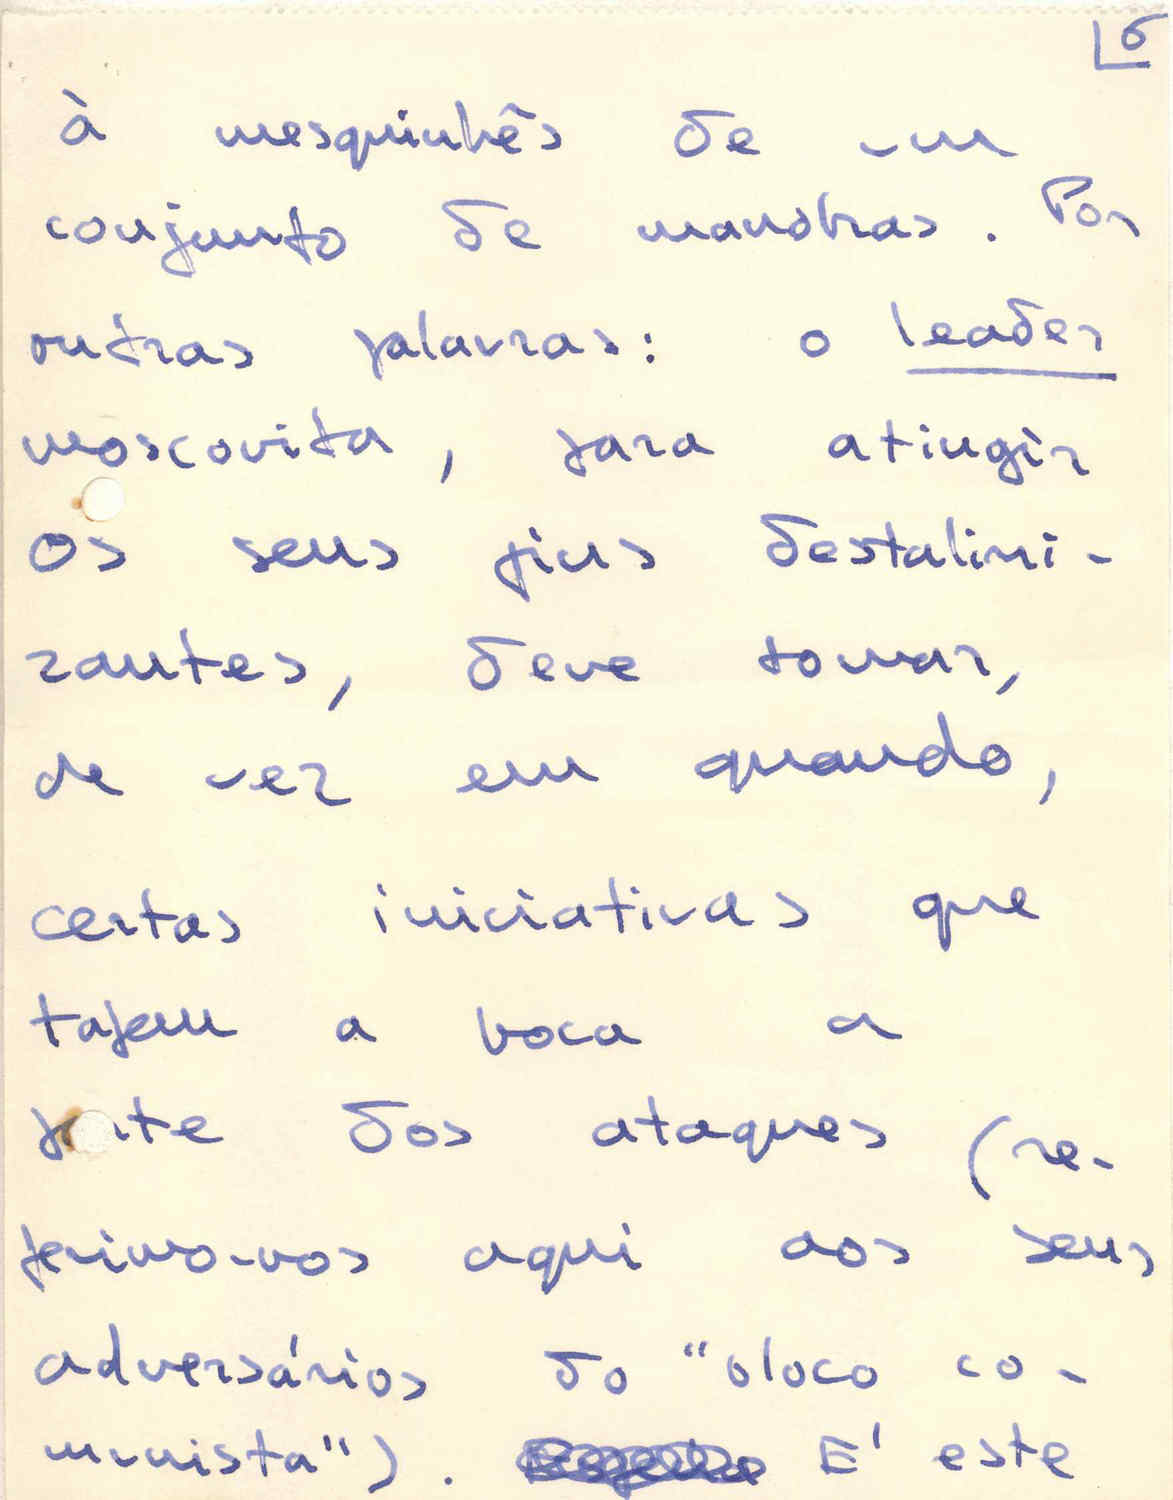 6
à mesquinhês de um
conjunto de manobras. Por
outras palavras: o leader
moscovita, para atingir
os seus fins destalini-
zantes, deve tomar,
de vez em quando,
certas iniciativas que
tapem a boca a
parte dos ataques (re-
ferimo-nos aqui aos seus
adversários do "bloco co-
munista"). E' este